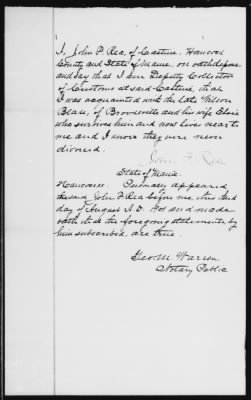 I, John P. Rea, of Castine, Hancock
County and State of Maine, on oath depose
and say that I am Deputy Collector
of Customs at said Castine, that
I was acquainted with the late Wilson
Blake, of Brooksville and his wife Elsie
who survives him and now lives near to
me and I know they were never
divorced.
John P. Rea
State of Maine.
Hancock ss. Personally appeared
the said John P. Rea before me this
day of August A. D. and made
oath that the foregoing statements, by
him subscribed, are true.
Geo. M. Warren
Notary Public